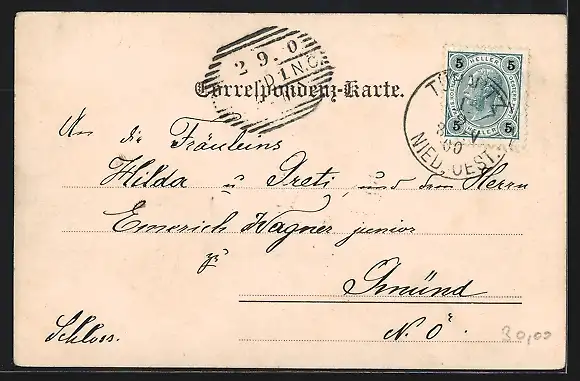 29. 0
DING
Correspondenz-Karte.
5 HELLER 5
5 HELLER 5
NIED. OEST.
00
An die Fräuleins
Hilda u Greti, und dem Herrn
Emerich Wagner junior
zu
Gmünd
N. Ö.
Schloss.
30,00